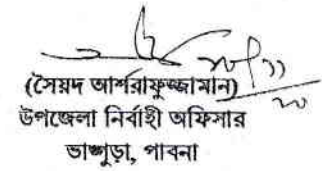 (সৈয়দ আশরাফুজ্জামান)
উপজেলা নির্বাহী অফিসার
ভাঙ্গুড়া, পাবনা